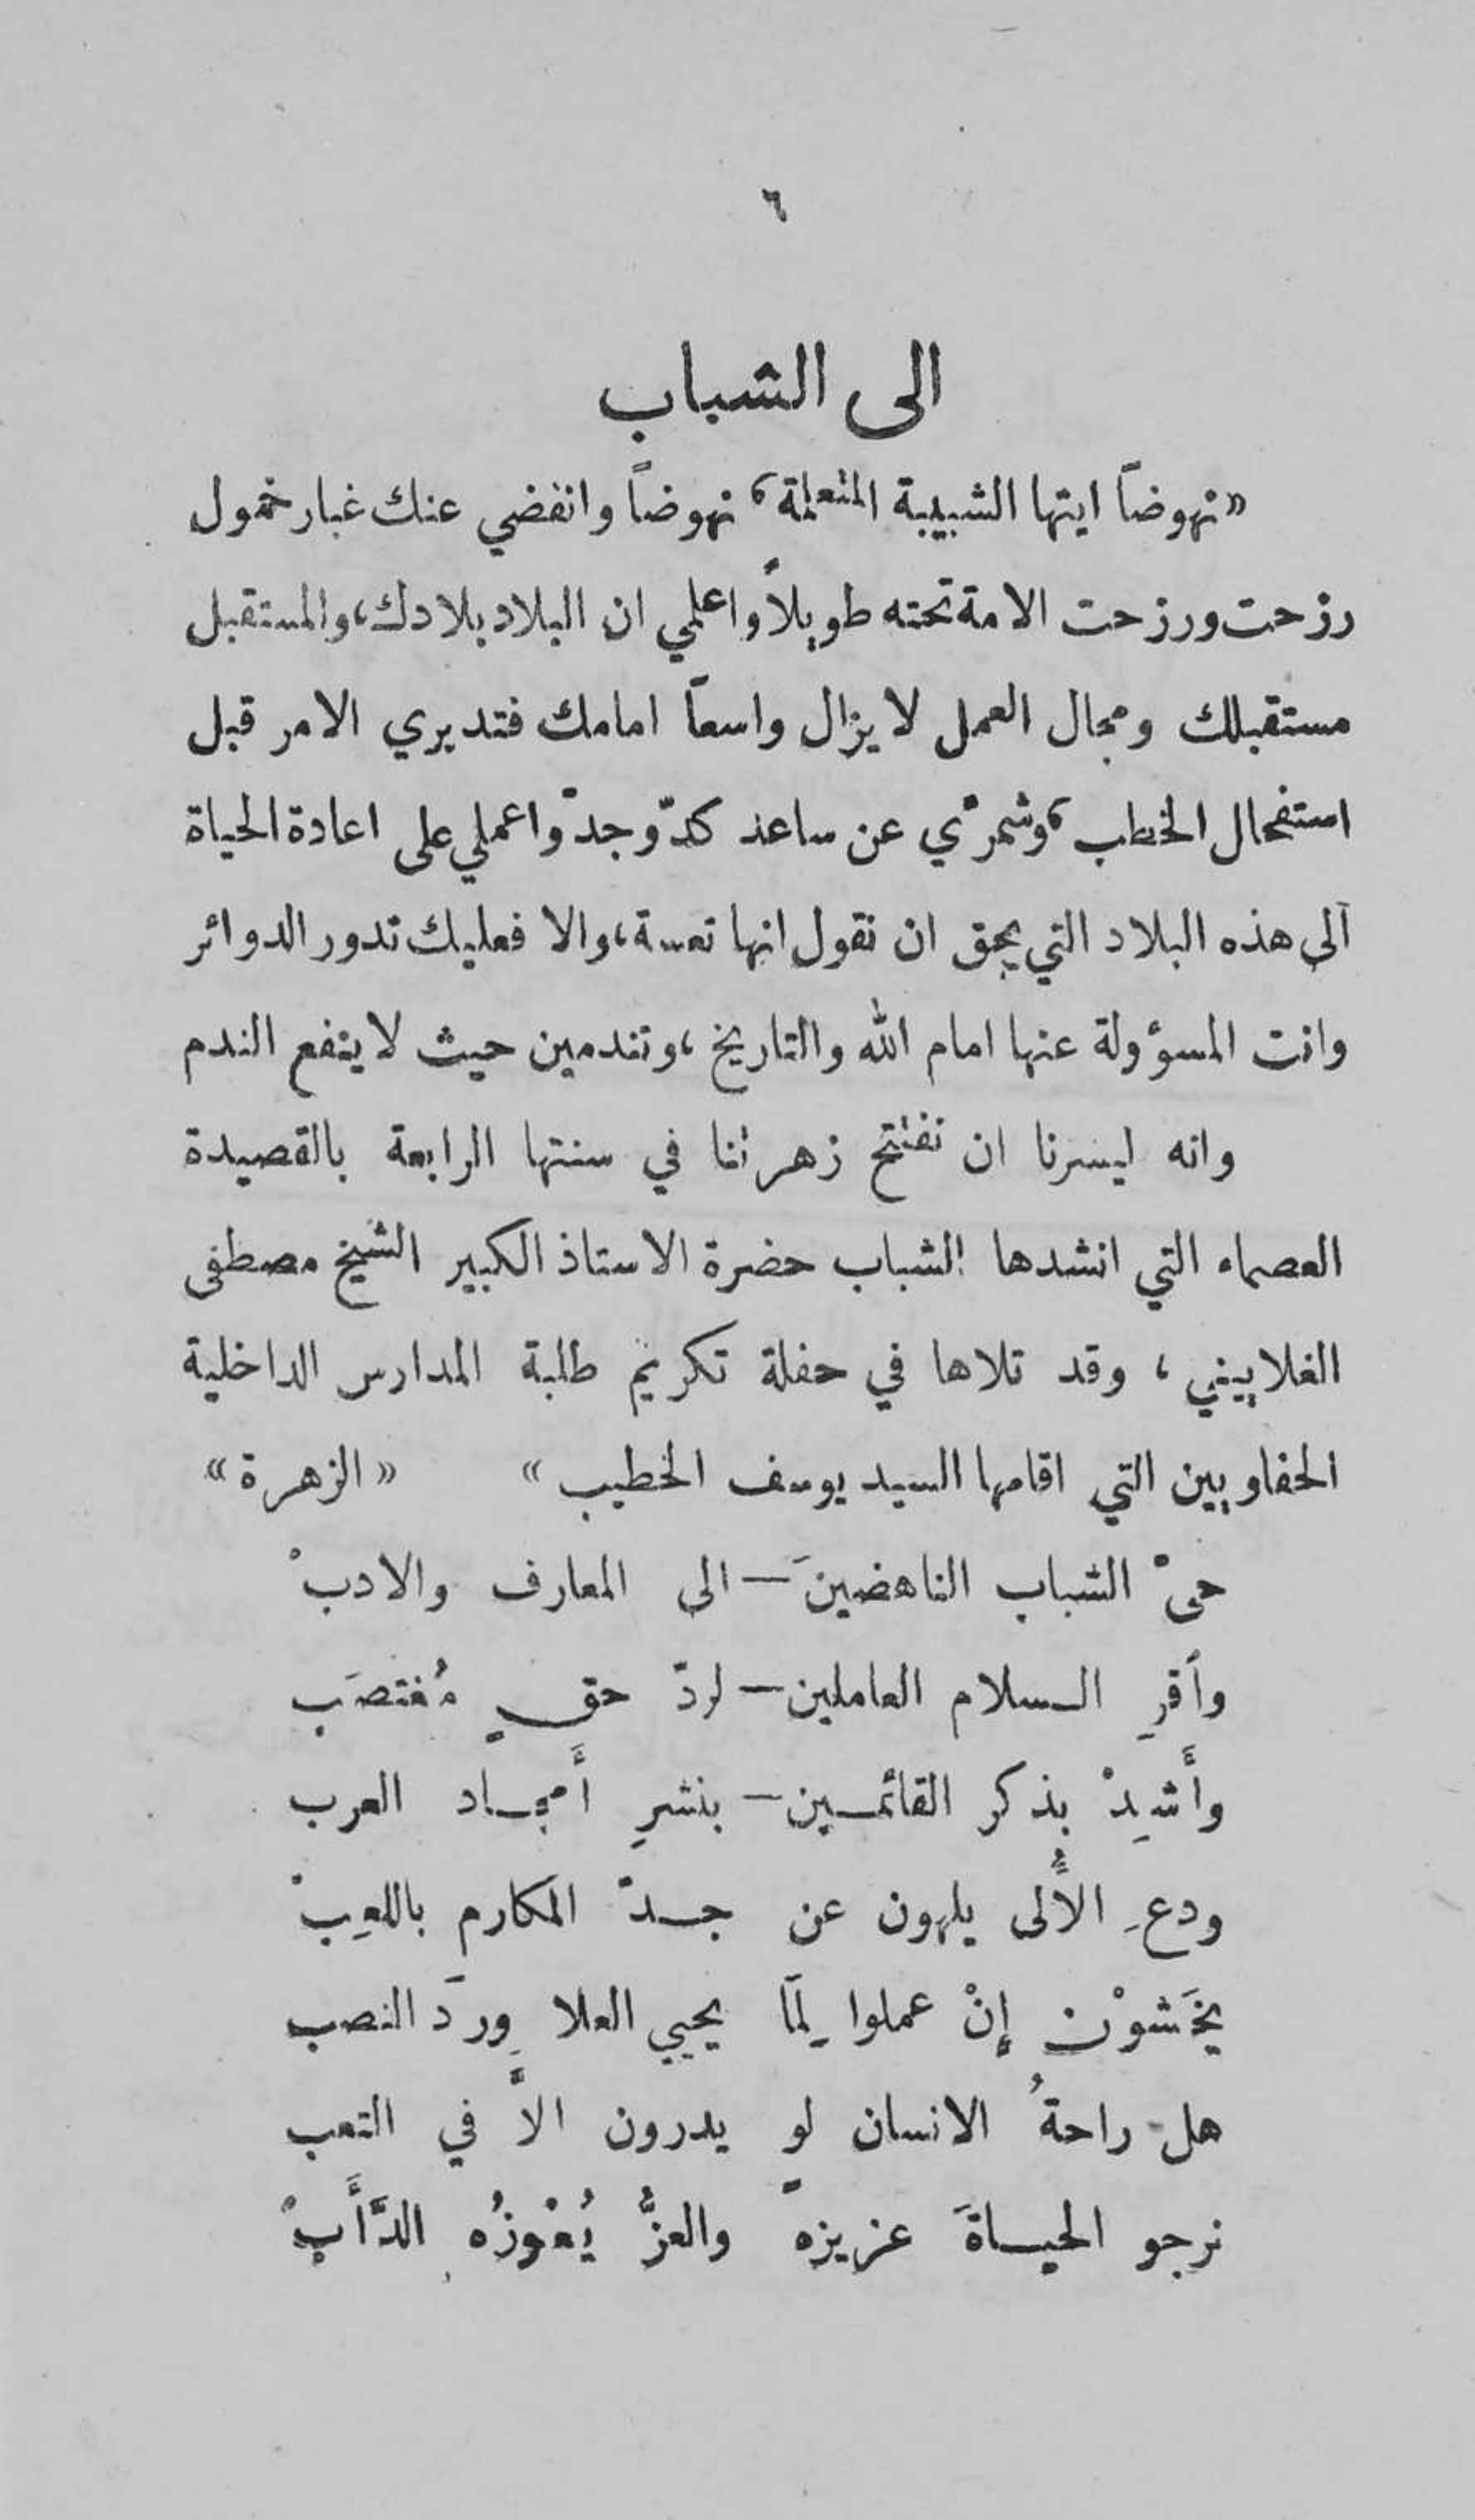 ٦
الى الشباب
«نهوضاً ايتها الشبيبة المتعلمة، نهوضاً وانفضي عنك غبار خمول
رزحت ورزحت الامة تحته طويلاً واعلمي ان البلاد بلادك، والمستقبل
مستقبلك ومجال العمل لا يزال واسعاً امامك فتديري الامر قبل
استفحال الخطب، وشمرّي عن ساعد كدّ وجدّ واعملي على اعادة الحياة
الى هذه البلاد التي يحق ان نقول انها تعسة، والا فعليك تدور الدوائر
وانت المسؤولة عنها امام الله والتاريخ، وتندمين حيث لا ينفع الندم
وانه ليسرنا ان نفتتح زهرتنا في سنتها الرابعة بالقصيدة
العصماء التي انشدها الشباب حضرة الاستاذ الكبير الشيخ مصطفى
الغلاييني، وقد تلاها في حفلة تكريم طلبة المدارس الداخلية
الحفاويين التي اقامها السيد يوسف الخطيب» «الزهرة»
حيّ الشباب الناهضينَ — الى المعارف والادبْ
وأقرِ السلام العاملين — لردّ حقٍ مُغتصَب
وأَشِدْ بذكر القائمين — بنشرِ أَمجاد العرب
ودعِ الأُلى يلهون عن جدّ المكارم باللعِبْ
يخَشوْن إِنْ عملوا لِمَا يحيي العلا وِردَ النصب
هل راحةُ الانسان لو يدرون الاَّ في التعب
نرجو الحياةَ عزيزةً والعزُّ يُعْوِزُه الدَّأَبْ